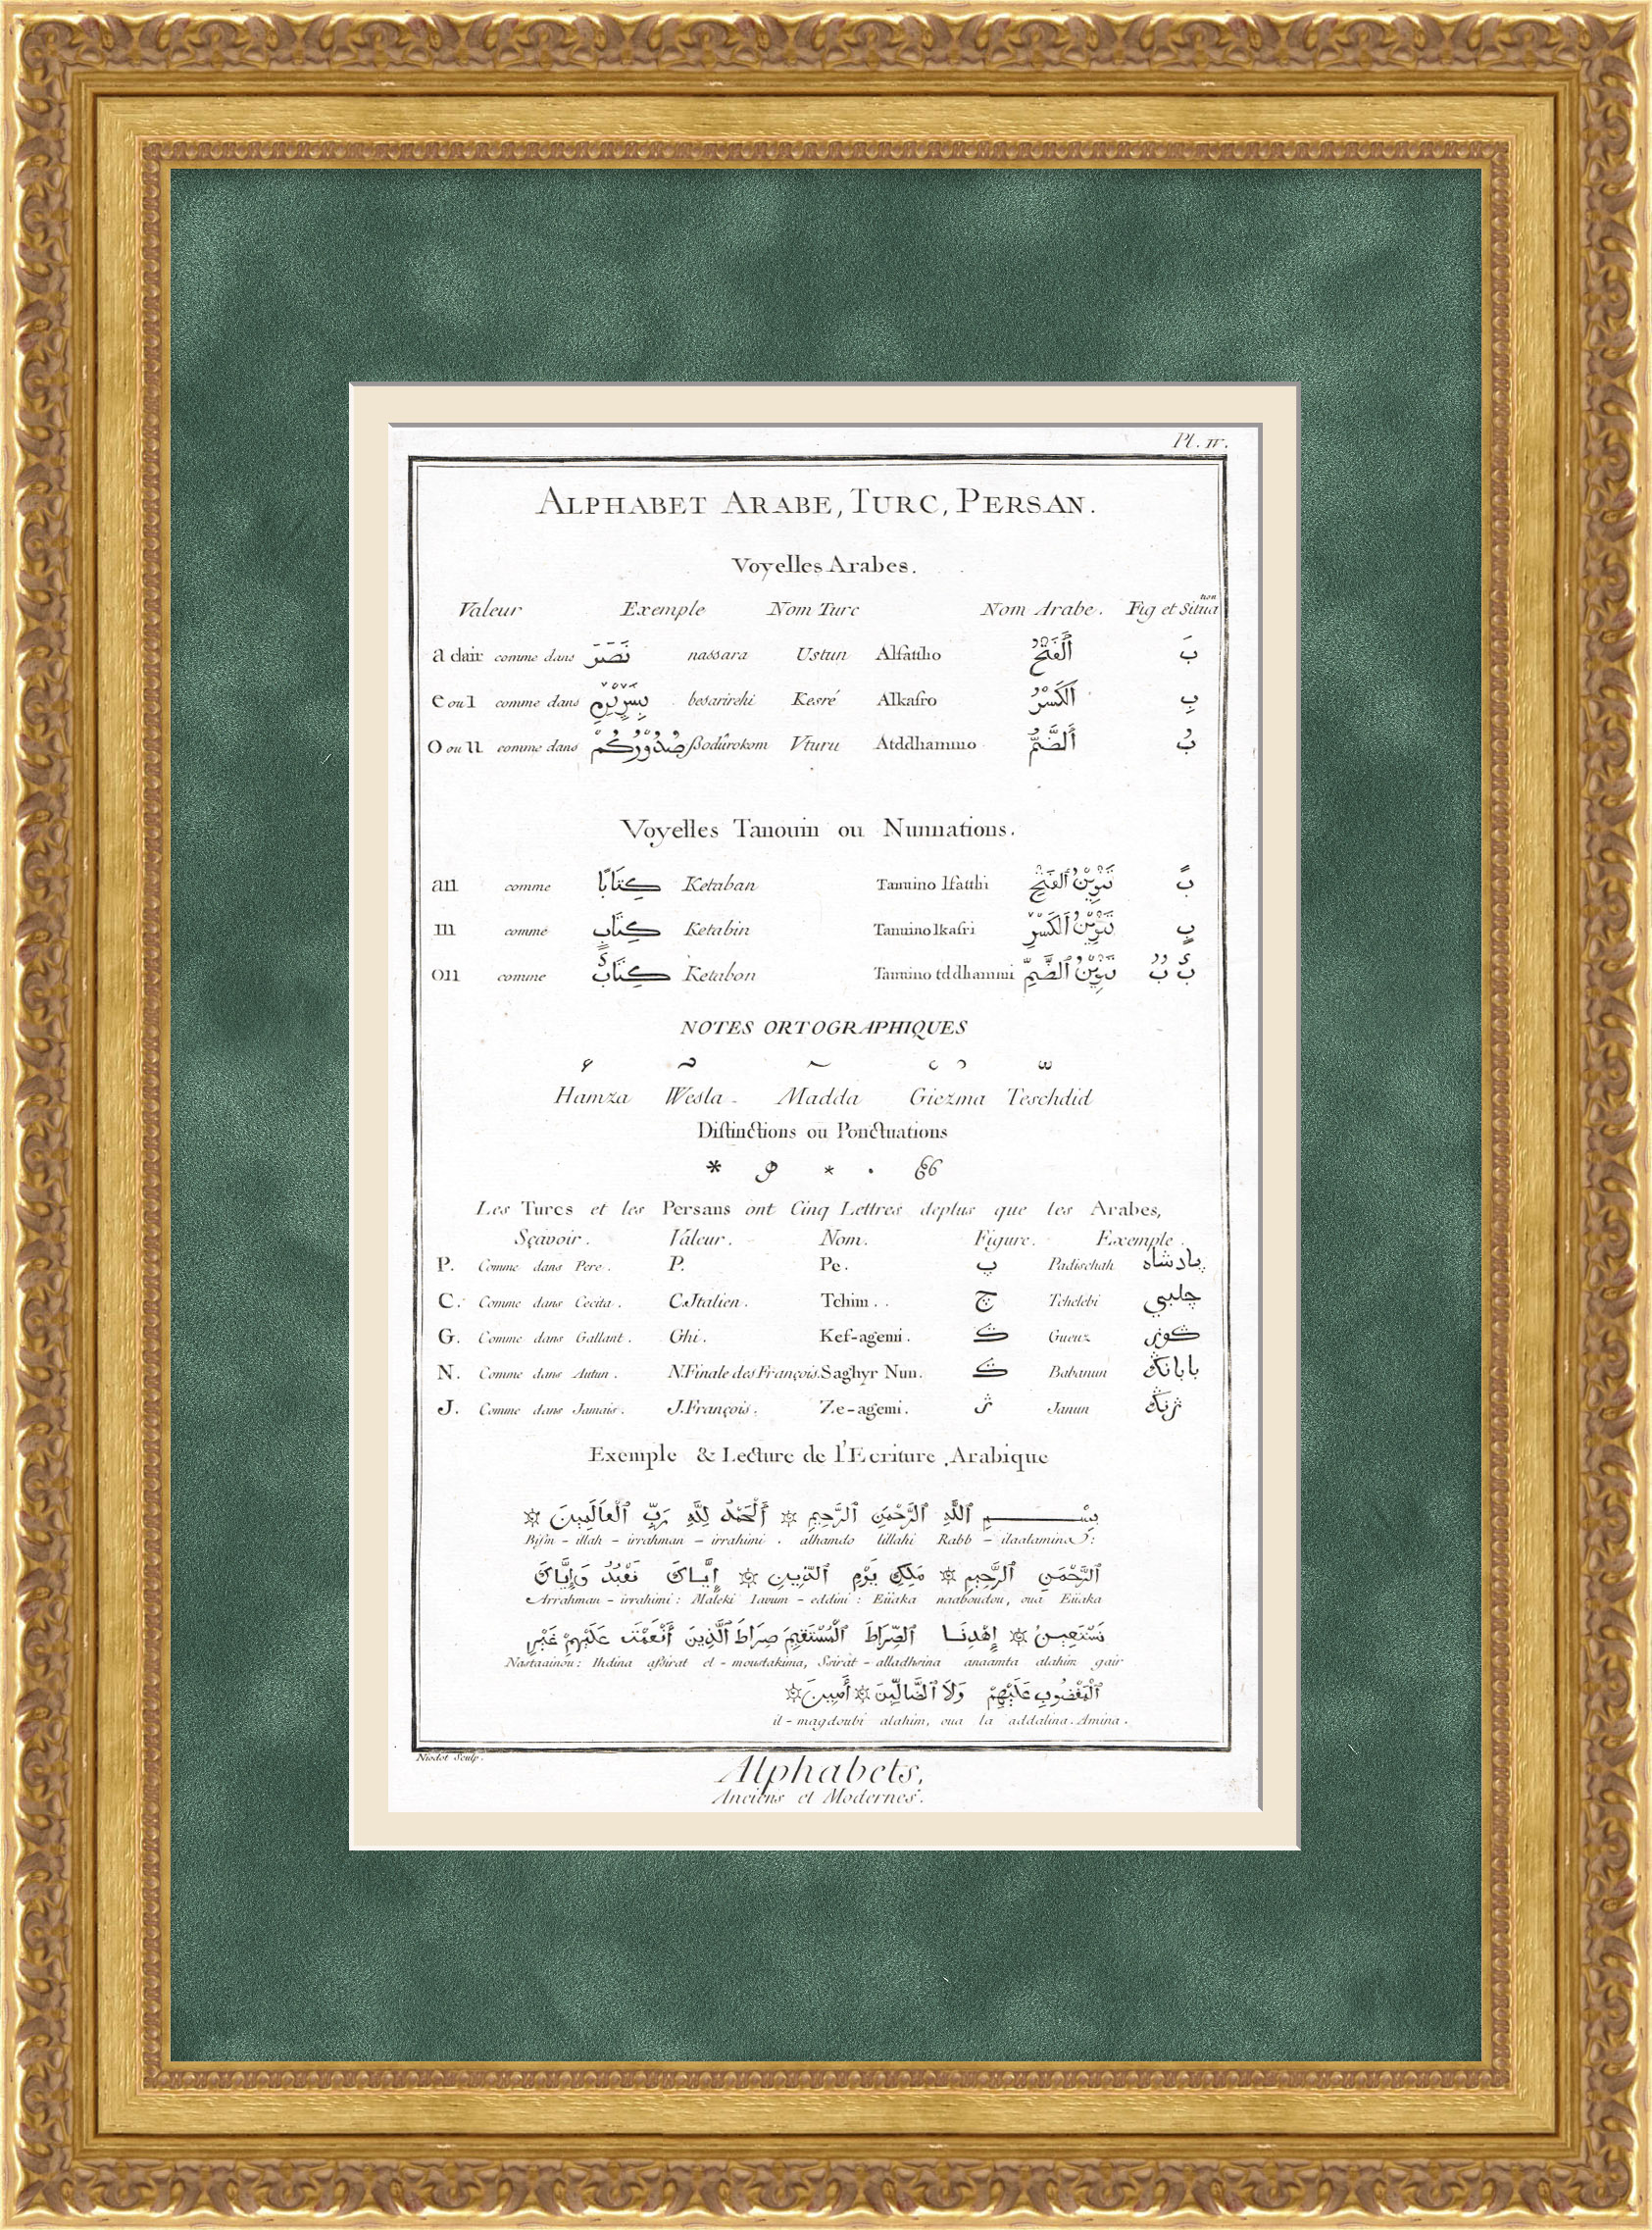 Pl. IV.
ALPHABET ARABE, TURC, PERSAN.
Voyelles Arabes.
Valeur Exemple Nom Turc Nom Arabe. Fig et Situation
a clair comme dans نَصَرَ nassara Ustun Alfattho اَلْفَتْحُ بَ
e ou i comme dans besarirehi Kesré Alkasro اَلْكَسْرُ بِ
o ou u comme dans صُدُوْرُكُمْ ßodûrokom Vturu Atddhammo اَلضَّمُّ بُ
Voyelles Tanouin ou Nunnations.
an comme كِتَابًا Ketaban Tanuino lfatthi تَنْوِيْنُ الْفَتْحِ بً
in comme كِتَابٍ Ketabin Tanuino lkasri تَنْوِيْنُ اَلْكَسْرِ بٍ
on comme كِتَابٌ Ketabon Tanuino tddhammi تَنْوِيْنُ الضَّمِّ بٌ بٌ
NOTES ORTOGRAPHIQUES
Hamza Wesla Madda Giezma Teschdid
Distinctions ou Ponctuations
Les Turcs et les Persans ont Cinq Lettres deplus que les Arabes,
Sçavoir. Valeur. Nom. Figure. Exemple.
P. Comme dans Pere. P. Pe. پ Padischah پادشاه
C. Comme dans Cecita. C.Italien. Tchim. چ Tchelebi چلبي
G. Comme dans Gallant. Ghi. Kef-agemi. ڭ Gueuz ڭوز
N. Comme dans Autun. N.Finale des François. Saghyr Nun. ڭ Babanun بابانڭ
J. Comme dans Jamais. J.François. Ze-agemi. ژ Janun ژنڭ
Exemple & Lecture de l'Ecriture Arabique
بِسْمِ اللَّهِ الرَّحْمَنِ الرَّحِيمِ ۞ اَلْحَمْدُ لِلَّهِ رَبِّ الْعَالَمِينَ ۞
Bism - illah - irrahman - irrahimi . alhamdo lillahi Rabb - ilaalamina :
الرَّحْمَنِ الرَّحِيمِ ۞ مَلِكِ يَوْمِ الدِّينِ ۞ إِيَّاكَ نَعْبُدُ وَإِيَّاكَ
Arrahman - irrahimi : Maleki Iavum - eddini : Eüaka naaboudou, oua Eüaka
نَسْتَعِينُ ۞ إِهْدِنَا الصِّرَاطَ الْمُسْتَقِيمَ صِرَاطَ الَّذِينَ أَنْعَمْتَ عَلَيْهِمْ غَيْرِ
Nastaainou : Ihdina assirat el - moustakima, Ssirat - alladhsina anaamta alahim gair
الْمَغْضُوبِ عَلَيْهِمْ وَلَا الضَّالِّينَ ۞ أَمِينَ ۞
il - magdoubi alahim, oua la addalina. Amina.
Niodot Sculp.
Alphabets,
Anciens et Modernes.